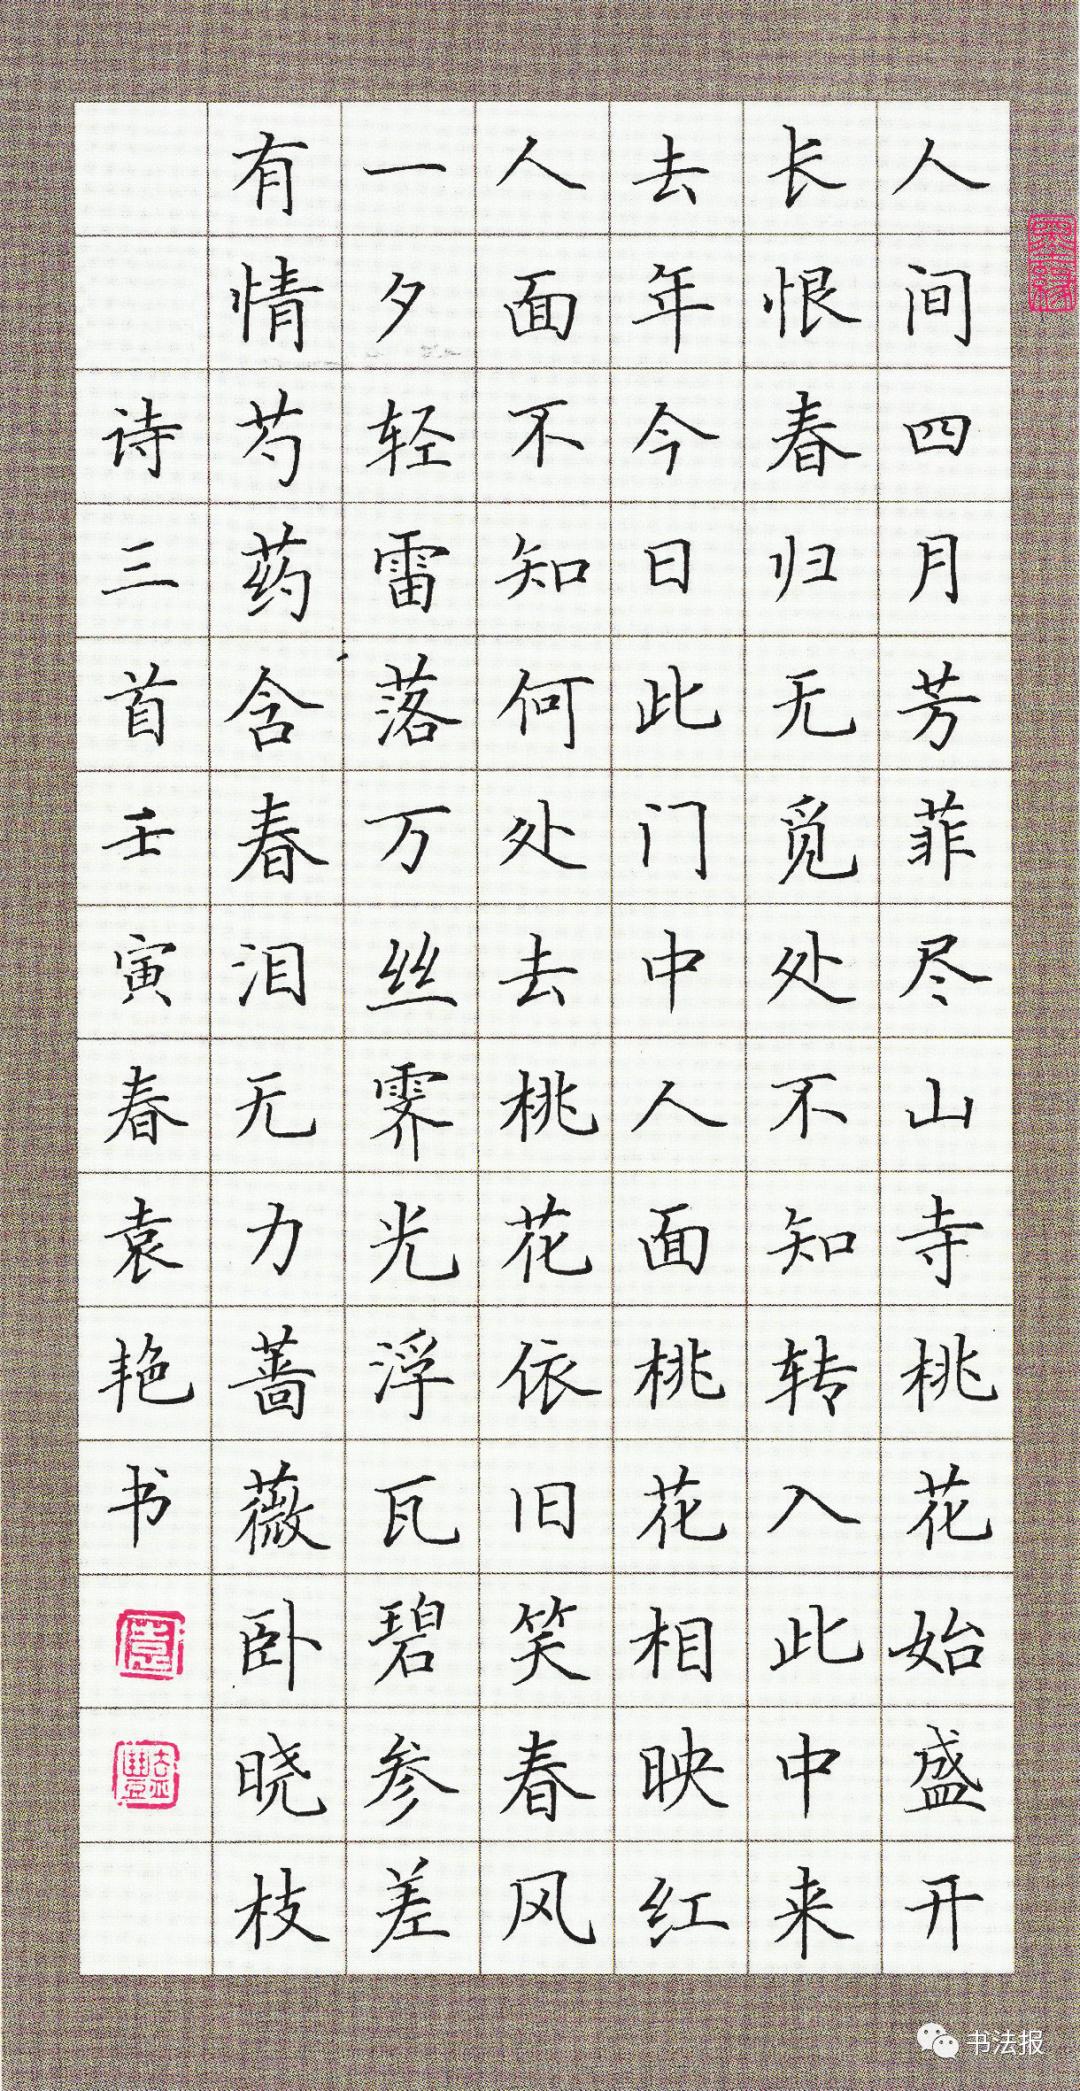 人间四月芳菲尽山寺桃花始盛开
长恨春归无觅处不知转入此中来
去年今日此门中人面桃花相映红
人面不知何处去桃花依旧笑春风
一夕轻雷落万丝霁光浮瓦碧参差
有情芍药含春泪无力蔷薇卧晓枝
诗三首壬寅春袁艳书
书法报